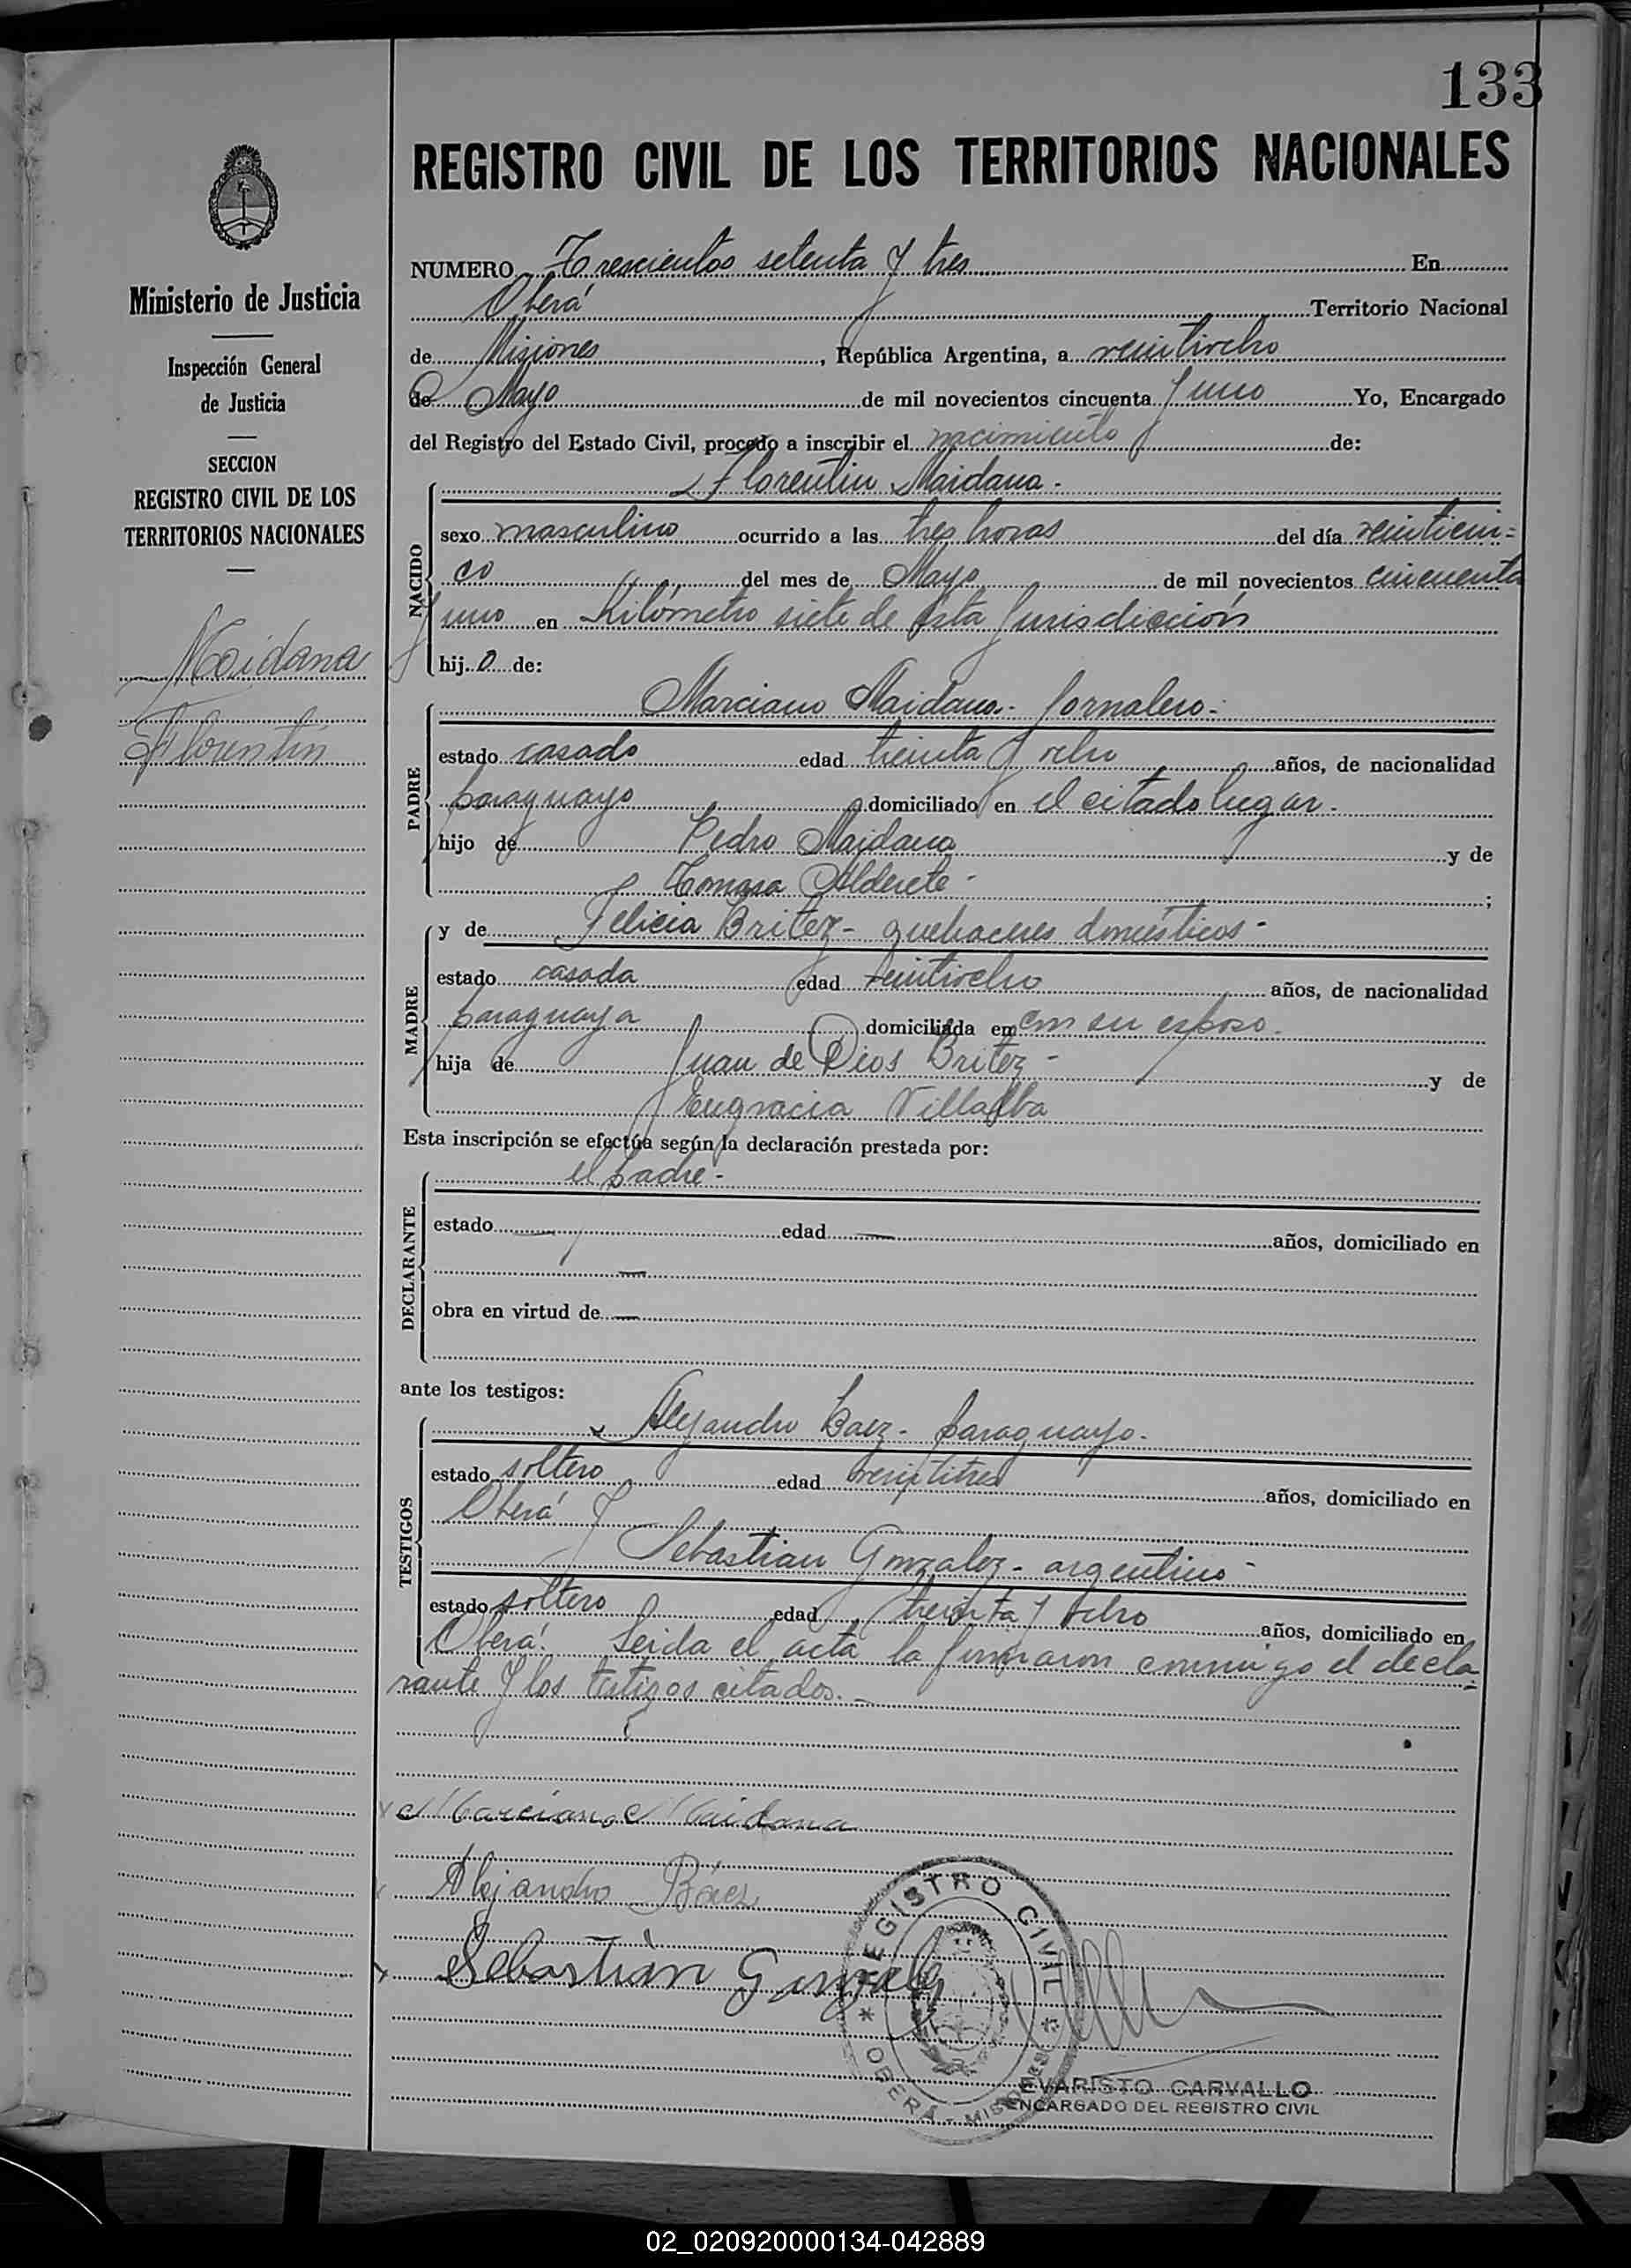 133
REGISTRO CIVIL DE LOS TERRITORIOS NACIONALES
Ministerio de Justicia
Inspección General
de Justicia
SECCION
REGISTRO CIVIL DE LOS
TERRITORIOS NACIONALES
Maidana
Florentín
NUMERO Trescientos setenta y tres En
Oberá Territorio Nacional
de Misiones, República Argentina, a veintiocho
de Mayo de mil novecientos cincuenta y uno Yo, Encargado
del Registro del Estado Civil, procedo a inscribir el nacimiento de:
Florentin Maidana.-
NACIDO
sexo masculino ocurrido a las tres horas del día veinticin=
co del mes de Mayo de mil novecientos cincuenta
y uno en Kilómetro siete de esta Jurisdicción
hijo de:
PADRE
Marciano Maidana.- Jornalero.-
estado casado edad treinta y ocho años, de nacionalidad
paraguayo domiciliado en el citado lugar.
hijo de Pedro Maidana y de
Tomasa Alderete- ;
MADRE
y de Felicia Britez- quehaceres domésticos-
estado casada edad veintiocho años, de nacionalidad
paraguaya domiciliada en con su esposo.
hija de Juan de Dios Britez- y de
Engracia Villalba
Esta inscripción se efectúa según la declaración prestada por:
DECLARANTE
el padre-
estado — edad — años, domiciliado en
—
obra en virtud de —
ante los testigos:
TESTIGOS
Alejandro Baez- paraguayo.
estado soltero edad veintitres años, domiciliado en
Oberá y
Sebastian Gonzalez- argentino-
estado soltero edad treinta y ocho años, domiciliado en
Oberá. Leida el acta la firmaron conmigo el decla=
rante y los testigos citados.-
Marciano Maidana
Alejandro Báez
Sebastián Gonzalez
REGISTRO CIVIL
* OBERÁ - MISIONES *
EVARISTO CARVALLO
ENCARGADO DEL REGISTRO CIVIL
02_020920000134-042889